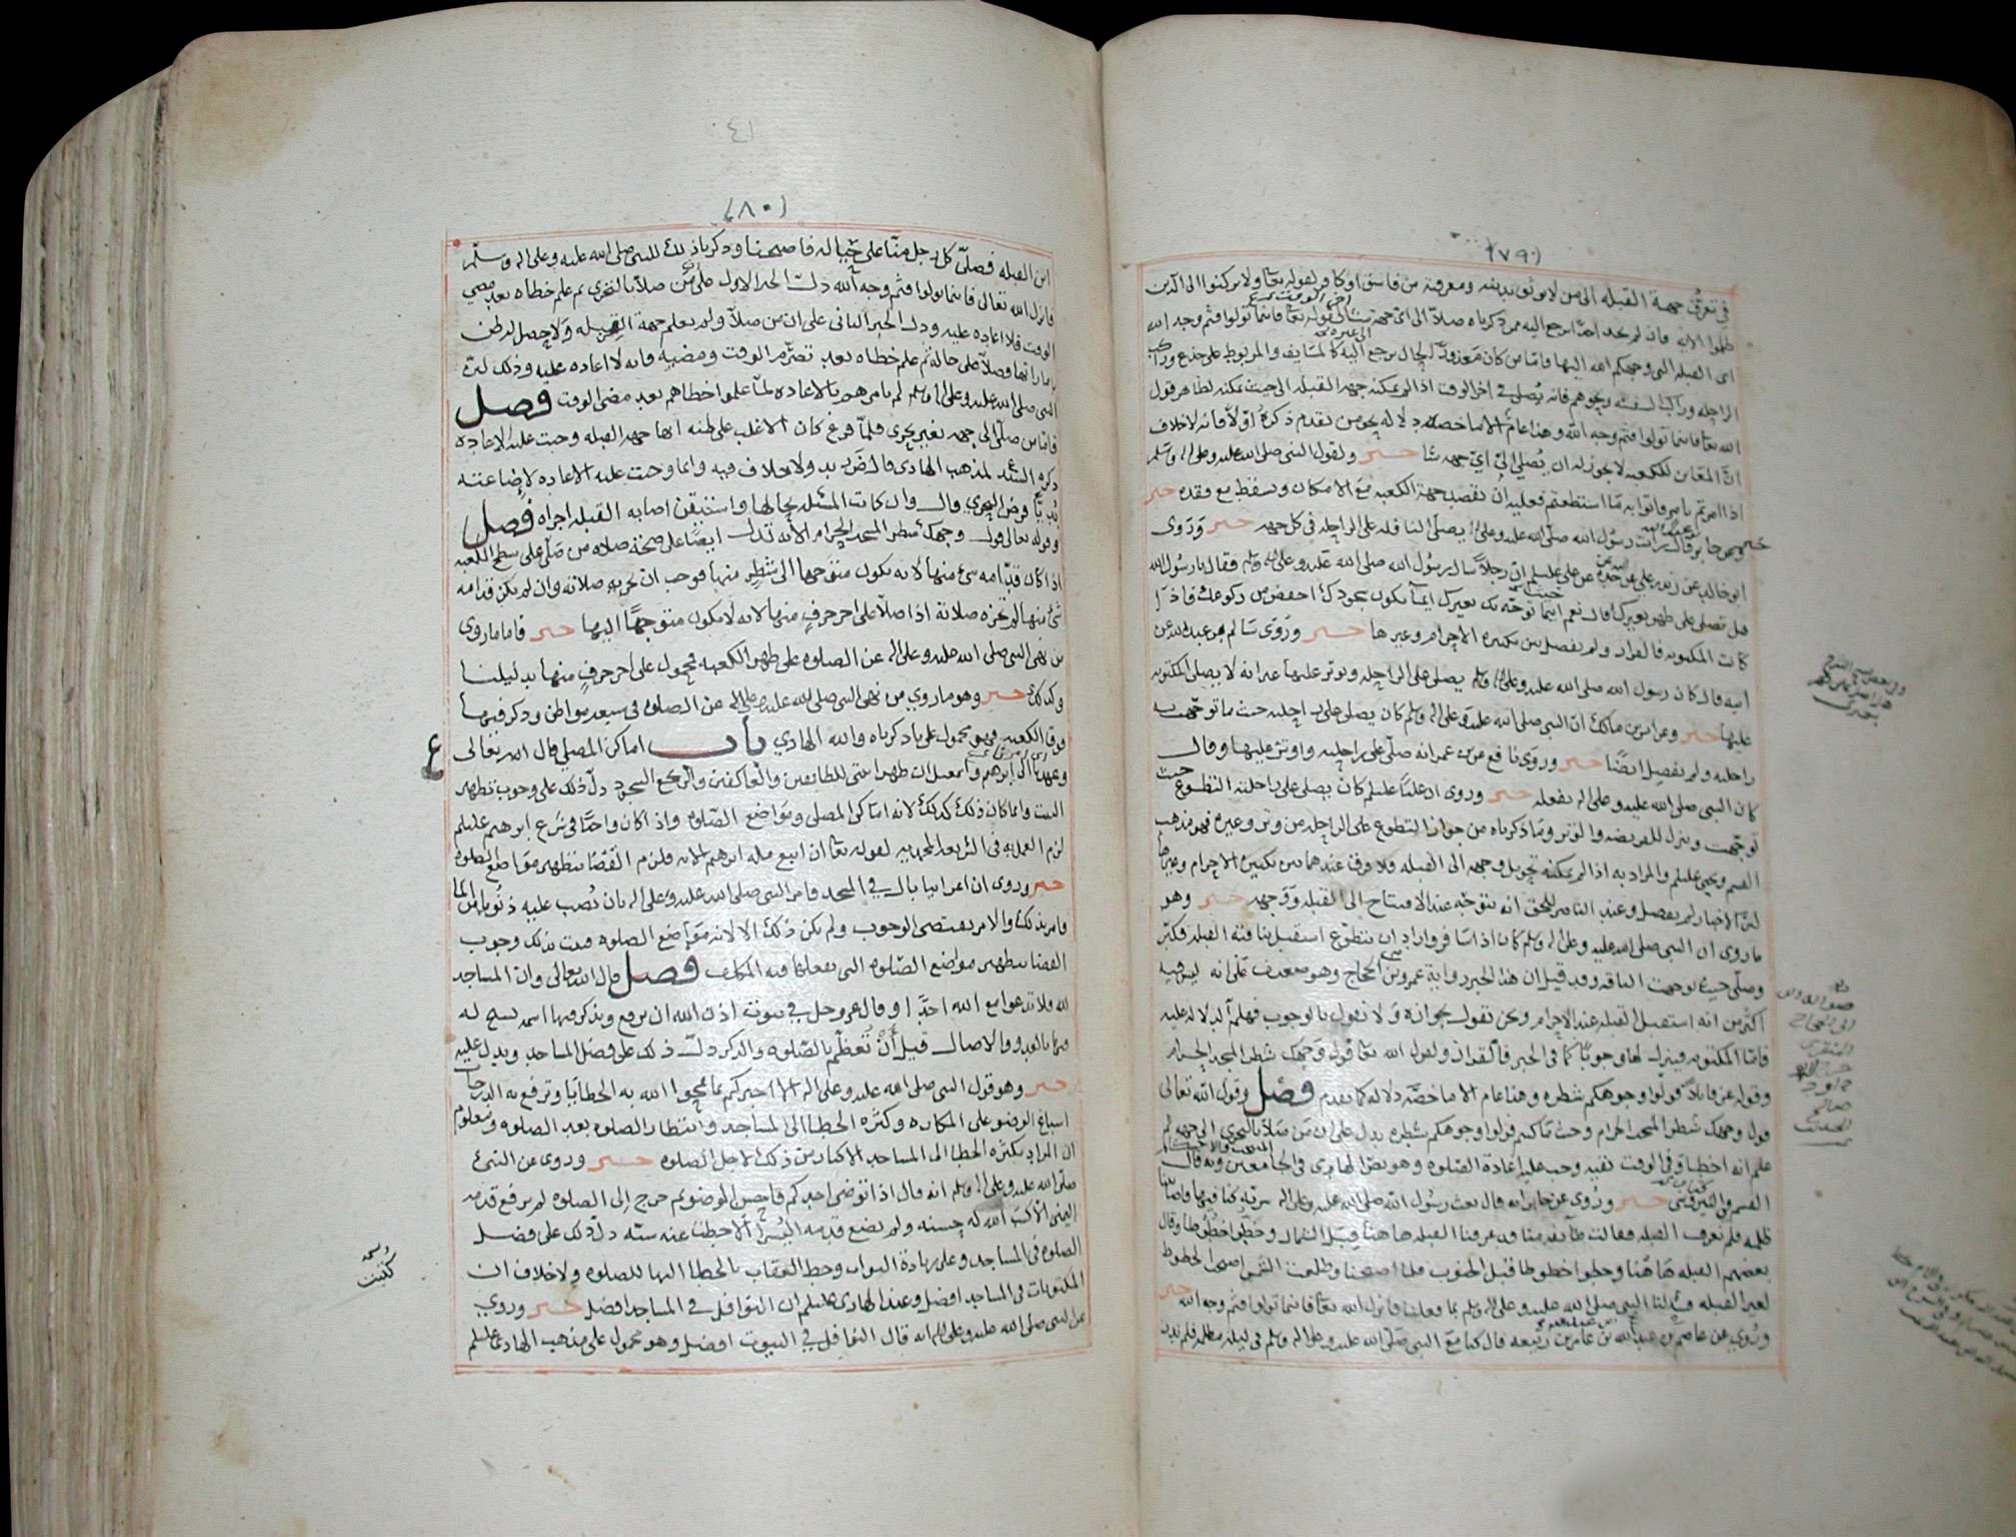 (٧٩)
في تعرّف جهة القبله الى من لا يوثق بدينه ومعرفته من فاسق اوكافر لقوله تعا ولا تركنوا الى الذين
ظلموا الايه فان لم يجد احدا يرجع اليه ممن ذكرناه صلا الى اي جهه شا لقوله تعا فاينما تولوا فثم وجه الله
اى القبله التى وجهكم الله اليها فاما من كان معذورا كالمسايف والمربوط على جذع وراكب
الراحله وراكب السفينه ونحوهم فانه يصلى في اخر الوقت اذا لم يمكنه جهه القبله الى حيث يمكنه لظاهر قول
الله تعا فاينما تولوا فثم وجه الله وهذا عام الا ما خصته دلاله نحو من تقدم ذكره اولا فانه لا خلاف
ان المعاين للكعبه لا يجوز له ان يصلي الى اي جهه شا خبر ولقول النبي صلى الله عليه وعلى اله وسلم
اذا امرتم بامر فاتوا به ما استطعتم فعليه ان يقصد جهة الكعبه مع الامكان ويسقط مع فقده خبر
وعن جابر قال رايت رسول الله صلى الله عليه وعلى اله يصلي النافله على الراحله في كل جهه خبر وروى
ابو خالد عن زيد بن علي عن جده عن علي عليلم ان رجلا سال رسول الله صلى الله عليه وعلى اله وسلم فقال يا رسول الله
هل تصلي على ظهر بعيرك قال نعم اينما توجه بك بعيرك ايمآ يكون سجودك اخفض من ركوعك فاذا
كانت المكتوبه فالقرار ولم يفصل بين تكبيره الاحرام وغيرها خبر وروى سالم بن عبدالله عن
ابيه قال كان رسول الله صلى الله عليه وعلى اله وسلم يصلي على الراحله ويوتر عليها غير انه لا يصلي المكتوبه
عليها خبر وعن انس بن مالك ان النبي صلى الله عليه وعلى اله وسلم كان يصلي على راحلته حيث ما توجهت به
راحلته ولم يفصل ايضا خبر وروى نافع عن بن عمر انه صلى على راحلته واوتر عليها وقال
كان النبي صلى الله عليه وعلى اله يفعله خبر وروى ان عليا عليلم كان يصلي على راحلته التطوع حيث
توجهت وينزل للفريضه والوتر وما ذكرناه من جواز التطوع على الراحله من وتر وغيره فهو مذهب
القسم ويحيى عليلم والمراد به اذا لم يمكنه تحويل وجهه الى القبله فلا فرق عندهما بين تكبيرة الاحرام وغيرها
لان الاخبار لم يفصل وعند الناصر للحق انه يتوجه عند الافتتاح الى القبله ووجهه خبر وهو
ما روى ان النبي صلى الله عليه وعلى اله وسلم كان اذا سافر واراد ان يتطوع استقبل بناقته القبله فكبر
وصلى حيث توجهت الناقه وقد قيل ان هذا الخبر رواية عمرو بن الحجاج وهو ضعيف على انه ليس فيه
اكثر من انه استقبل القبله عند الاحرام ونحن نقول بجوازه ولا نقول بالوجوب فهلم الدلاله عليه
فاما المكتوبه فينزل لها وجوبا كما في الخبر فالقران ولقول الله تعا فول وجهك شطر المسجد الحرام
وقوله عز قايلا فولوا وجوهكم شطره وهذا عام الا ما خصه دلاله كما تقدم فصل وقول الله تعالى
فول وجهك شطر المسجد الحرام وحيث ما كنتم فولوا وجوهكم شطره يدل على ان من صلا بالتحرى الى جهه ثم
علم انه اخطا وفى الوقت بقيه وجب عليه اعادة الصلوه وهو نص الهادى فى الجامعين وبه قال
القسم في النيروسى خبر وروى عن جابر انه قال بعث رسول الله صلى الله عليه وعلى اله سريّه كنا فيها فاصابتنا
ظلمه فلم نعرف القبله فقالت طايفه منا قد عرفنا القبله هاهنا قبل الشمال وخطوا خطوطا وقال
بعضهم القبله هاهنا وخطوا خطوطا قبل الجنوب فلما اصبحنا وطلعت الشمس اصبحت الخطوط
لغير القبله فسالنا النبي صلى الله عليه وعلى اله وسلم عما فعلنا فانزل الله تعا فاينما تولوا فثم وجه الله خبر
وروى عن عاصم بن عبيد الله عن عبدالله بن عامر بن ربيعه قال كنا مع النبي صلى الله عليه وعلى اله وسلم فى ليله مظلمه فلم ندر
٤١
(٨٠)
اين القبله فصلى كل رجل منا على حياله فاصبحنا وذكرنا ذلك للنبي صلى الله عليه وعلى اله وسلم
فانزل الله تعالى فاينما تولوا فثم وجه الله دلت الخبر الاول على من صلا بالتحرى ثم علم خطاه بعد مضي
الوقت فلا اعاده عليه ودل الخبر الثاني على ان من صلا ولم يعلم جهة القبله ولا حصل له ظن
بامارتها وصلا على حاله ثم علم خطاه بعد تصرم الوقت ومضيه فانه لا اعاده عليه وذلك لان
النبى صلى الله عليه وعلى اله وسلم لم يامرهم بالاعاده لما علموا اخطاهم بعد مضى الوقت فصل
فاما من صلى الى جهه بغير تحرى فلما فرغ كان الاغلب على ظنه انها جهه القبله وجبت عليه الاعاده
ذكره السيد ط لمذهب الهادى قال ض زيد ولا خلاف فيه وانما وجبت عليه الاعاده لاضاعته
بديا فرض التحري وقال وان كانت المسئله بحالها واستيقن اصابه القبله اجزاه فصل
وقوله تعالى فول وجهك شطر المسجد الحرام الايه تدل ايضا على صحة صلاه من صلى على سطح الكعبه
اذا كان قدامه شى منها لانه يكون متوجها الى شطر منها فوجب ان تجزيه صلاته وان لم يكن قدامه
شى منها لم تجزه صلاته اذا صلا على اخر حرف منها لانه لا يكون متوجها اليها خبر فاما ما روى
من نهى النبي صلى الله عليه وعلى اله عن الصلوه على ظهر الكعبه فمحمول على اخر حرف منها بدليلنا
وكذلك خبر وهو ما روي من نهى النبى صلى الله عليه وعلى اله عن الصلوه فى سبعه مواطن وذكر فيها
فوق الكعبه فهو محمول على ما ذكرناه والله الهادي باب اماكن المصلي قال الله تعالى
وعهدنا الى ابرهيم واسمعيل ان طهرا بيتى للطايفين والعاكفين والركع السجود دل ذلك على وجوب تطهير
البيت وانما كان ذلك كذلك لانه اماكن المصلى ومواضع الصلوه واذا كان واجبا فى شرع ابرهيم عليلم
لزم العمل به فى الشريعه المحمديه لقوله تعا ان اتبع مله ابرهيم الايه فلزم القضا بتطهير مواضع الصلوه
خبر وروى ان اعرابيا بال في المسجد فامر النبى صلى الله عليه وعلى اله بان يصب عليه ذنوبا من الما
فامر بذلك والامر يقتضى الوجوب ولم يكن ذلك الا لانه مواضع الصلوه فثبت بذلك وجوب
القضا بتطهير مواضع الصلوه التى يفعلها فيه المكلف فصل قال الله تعالى وان المساجد
لله فلا تدعوا مع الله احدا وقال عز وجل في بيوت اذن الله ان ترفع ويذكر فيها اسمه يسبح له
فيها بالغدو والاصال قيل أن تُعظّم بالصلوه والذكر دلت ذلك على فضل المساجد ويدل عليه
خبر وهو قول النبى صلى الله عليه وعلى اله الا اخبركم بما يمحوا الله به الخطايا وترفع به الدرجات
اسباغ الوضو على المكاره وكثره الخطا الى المساجد وانتظار الصلوه بعد الصلوه ومعلوم
ان المراد بكثره الخطا الى المساجد الاكثار من ذلك لاجل الصلوه خبر وروى عن النبى
صلى الله عليه وعلى اله وسلم انه قال اذا توضى احدكم فاحسن الوضو ثم خرج الى الصلوه لم يرفع قدمه
اليمنى الا كتب الله له حسنه ولم يضع قدمه اليسرا الا حط عنه سيئه دل ذلك على فضل
الصلوه فى المساجد وعلى زيادة الثواب وحط العقاب بالخطا اليها للصلوه ولا خلاف ان
المكتوبات فى المساجد افضل وعند الهادى عليلم ان النوافل في المساجد افضل خبر وروي
عن النبى صلى الله عليه وعلى اله انه قال النوافل في البيوت افضل وهو محمول على مذهب الهادى عليلم